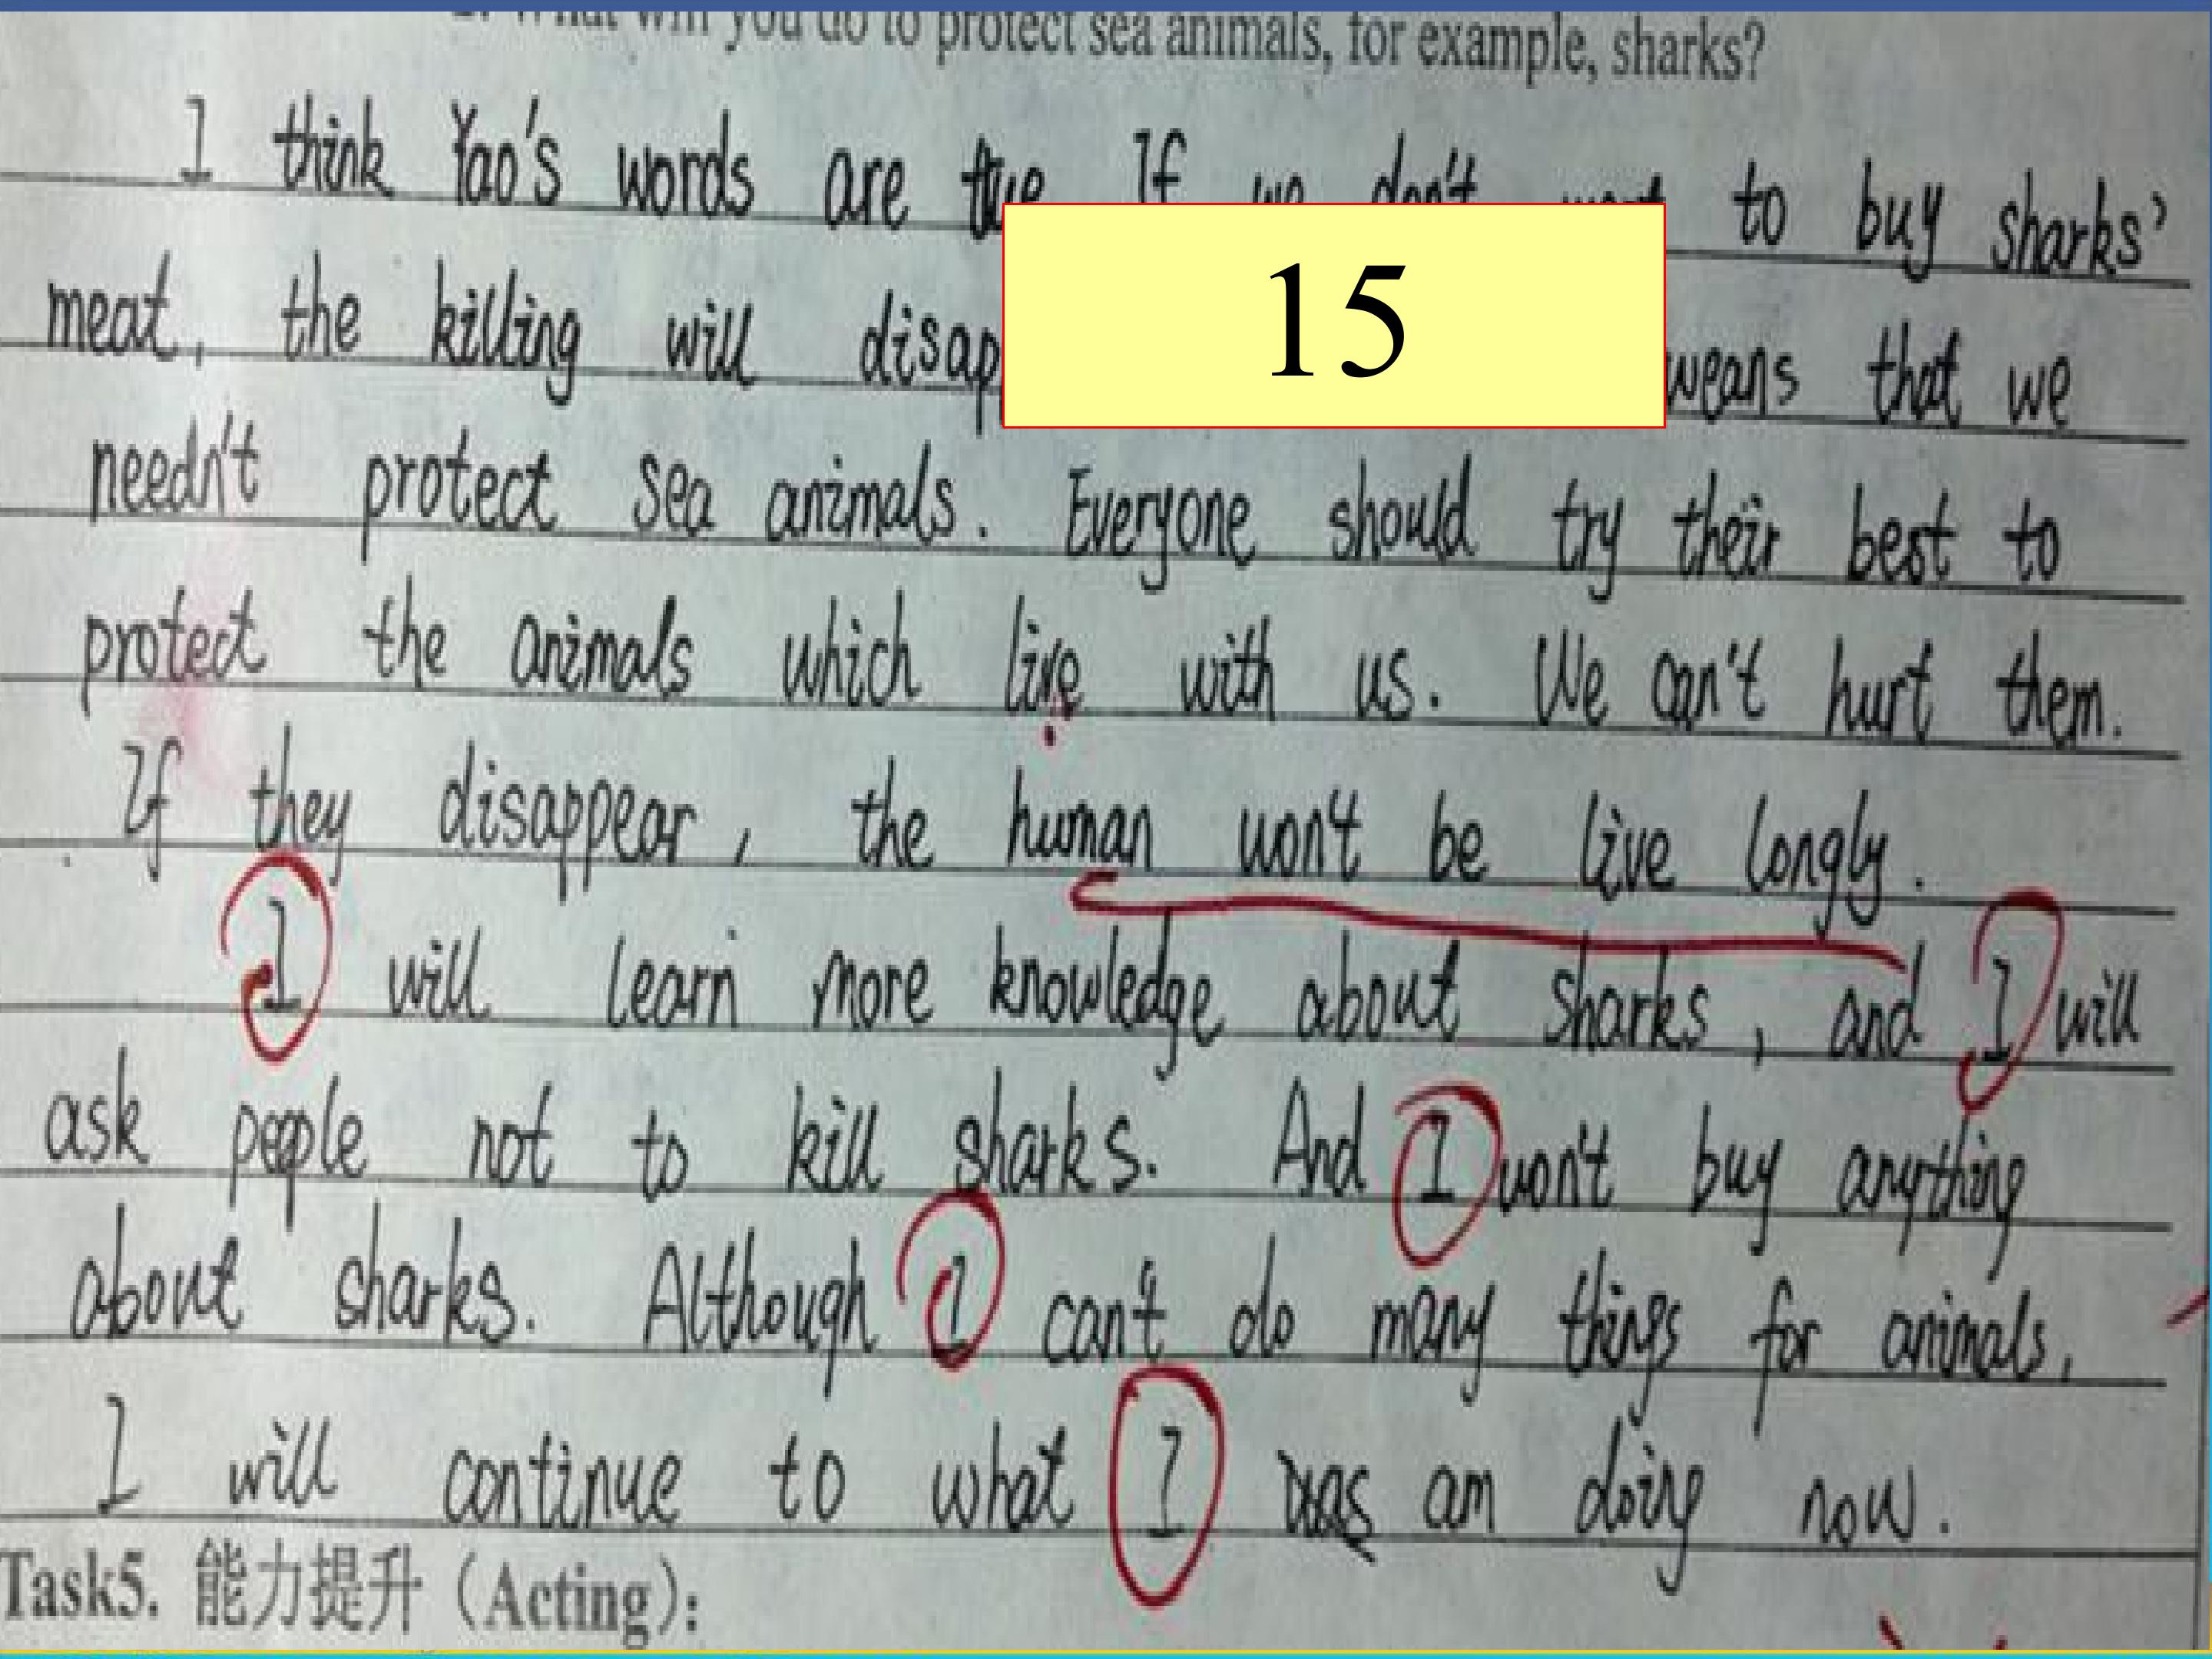 2. What will you do to protect sea animals, for example, sharks?
I think Yao's words are true If we don't want to buy sharks'
meat, the killing will disap
15
means that we
needn't protect sea animals. Everyone should try their best to
protect the animals which live with us. We can't hurt them.
If they disappear, the human won't be live longly.
I will learn more knowledge about sharks, and I will
ask people not to kill sharks. And I won't buy anything
about sharks. Although I can't do many things for animals,
I will continue to what I was am doing now.
Task5. 能力提升（Acting）: